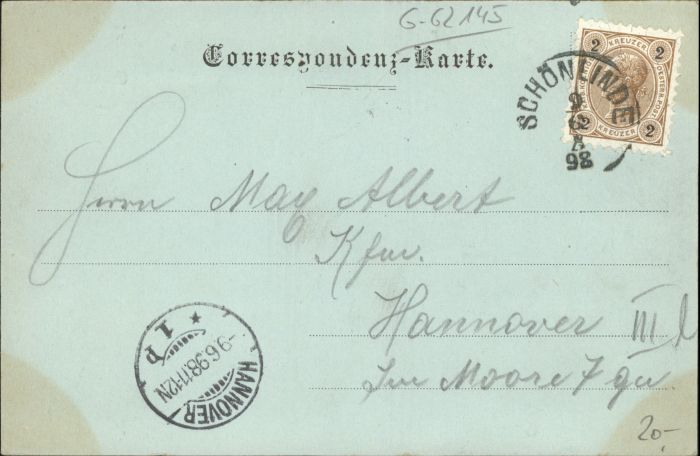 G-62145
Correspondenz-Karte.
2 KREUZER 2
SCHÖNLINDE
9
6
98
2 KREUZER 2
Herrn Max Albert
Kfm.
Hannover III
Im Moore 7
* 1 b
-9.6.98.11-12N
HANNOVER
20-